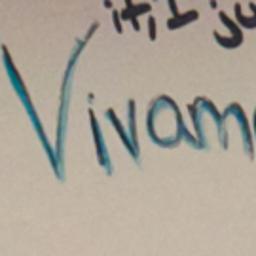 it, I ju
Vivam